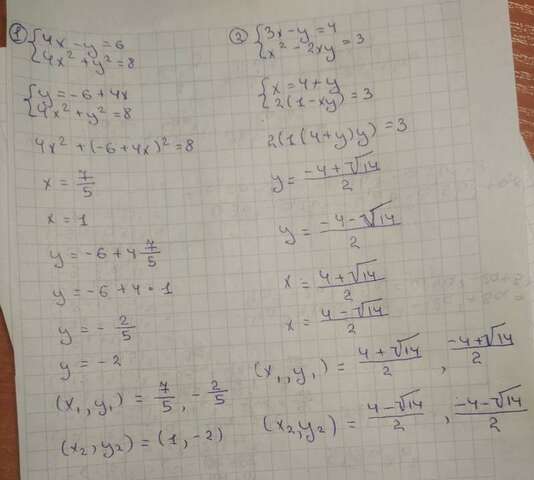 ① { 4x - y = 6
4x² + y² = 8
{ y = -6 + 4x
4x² + y² = 8
4x² + (-6 + 4x)² = 8
x = 7/5
x = 1
y = -6 + 4 7/5
y = -6 + 4 • 1
y = - 2/5
y = -2
(x₁, y₁) = 7/5, - 2/5
(x₂, y₂) = (1, -2)
② { 3x - y = 4
x² - 2xy = 3
{ x = 4 + y
2(1 - xy) = 3
2(1(4 + y)y) = 3
y = (-4 + √14)/2
y = (-4 - √14)/2
x = (4 + √14)/2
x = (4 - √14)/2
(x₁, y₁) = (4 + √14)/2, (-4 + √14)/2
(x₂, y₂) = (4 - √14)/2, (-4 - √14)/2